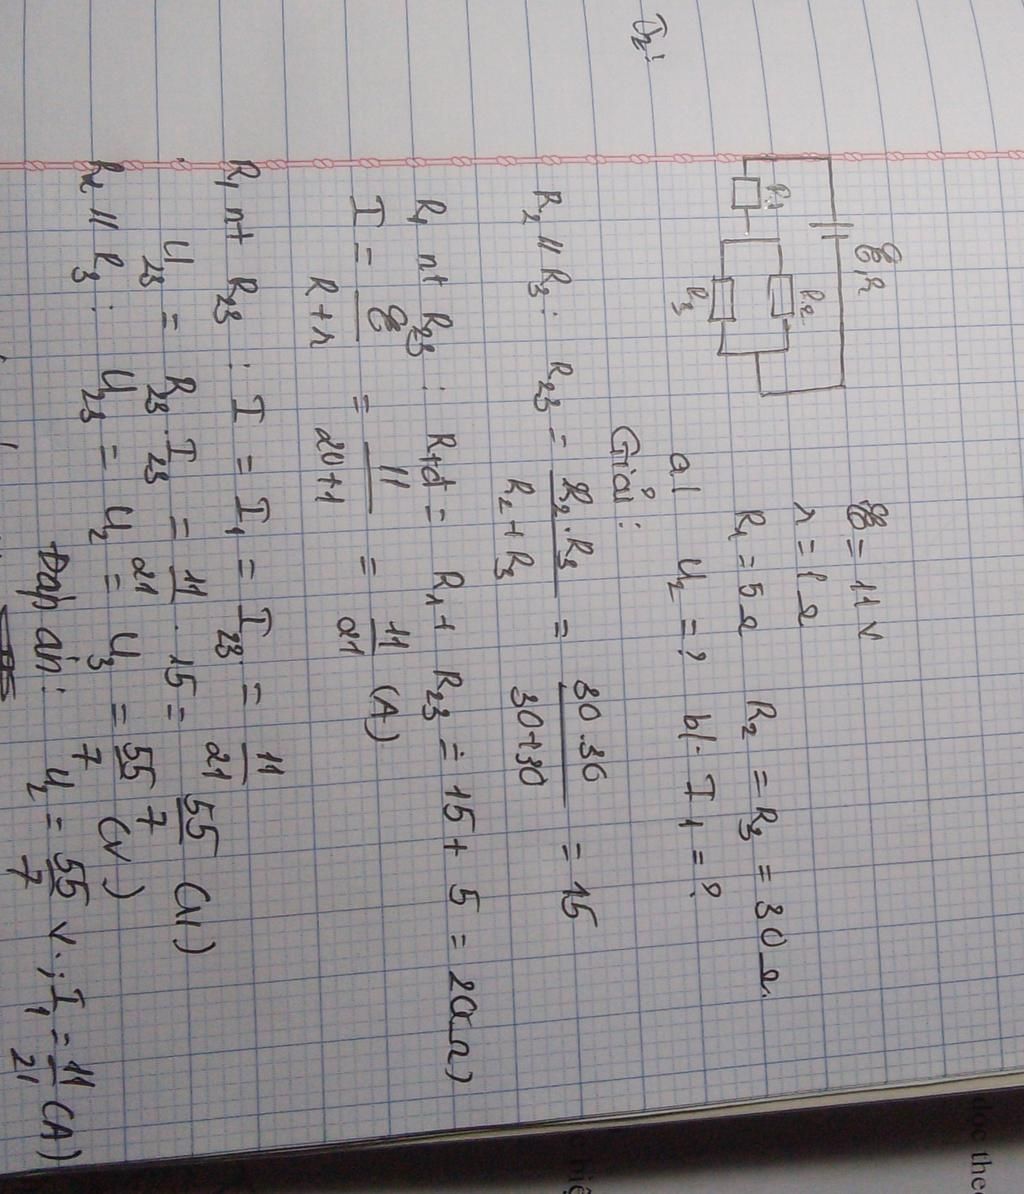 ξ, r
R1
R2
R3
ξ = 11 V
r = 1 Ω
R1 = 5 Ω R2 = R3 = 30 Ω
a/ U2 = ? b/ I1 = ?
Giải:
R2 // R3 : R23 = R2 . R3 / R2 + R3 = 30.30 / 30+30 = 15
R1 nt R23 : Rtđ = R1 + R23 = 15 + 5 = 20(Ω)
I = ξ / R + r = 11 / 20+1 = 11 / 21 (A)
R1 nt R23 : I = I1 = I23 = 11 / 21
U23 = R23 . I23 = 11 / 21 . 15 = 55 / 7 (V)
R2 // R3 : U23 = U2 = U3 = 55 / 7 (V)
Đáp án: U2 = 55 / 7 V ; I1 = 11 / 21 (A)
đọc thê